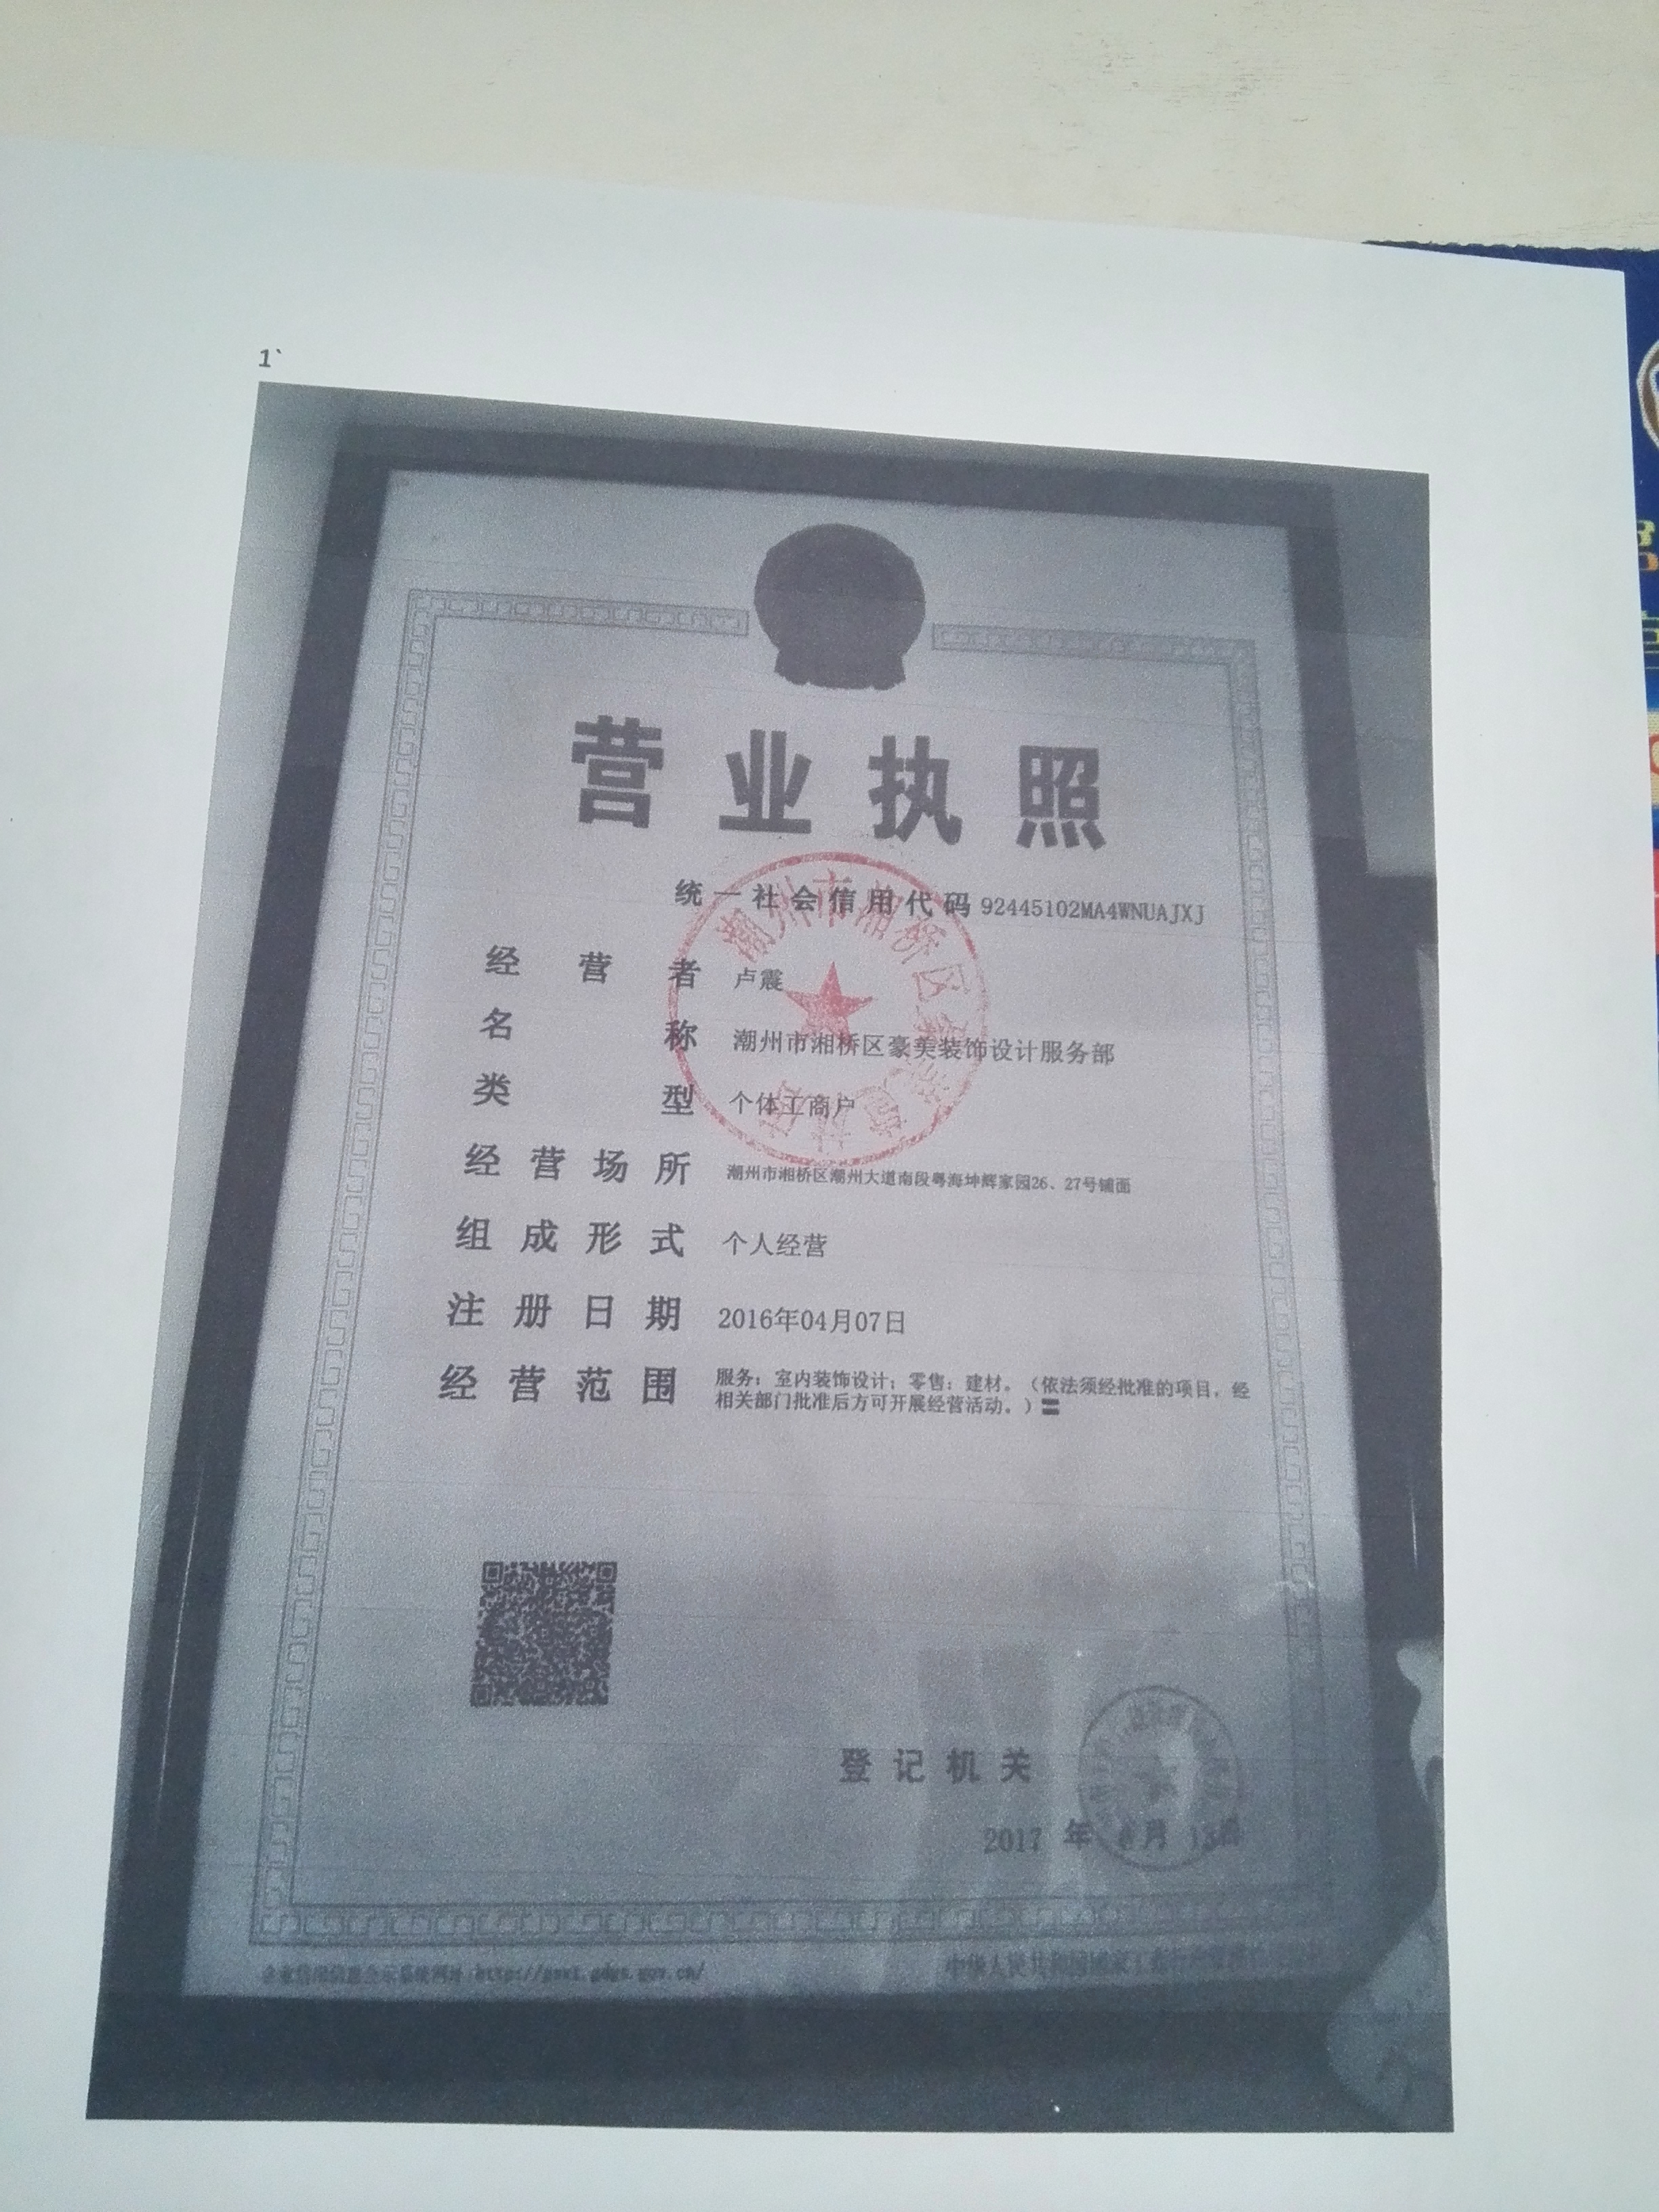 1`
营业执照
统一社会信用代码 92445102MA4WNUAJXJ
经营者 卢震
名称 潮州市湘桥区豪美装饰设计服务部
类型 个体工商户
经营场所 潮州市湘桥区潮州大道南段粤海坤辉家园26、27号铺面
组成形式 个人经营
注册日期 2016年04月07日
经营范围 服务：室内装饰设计；零售：建材。（依法须经批准的项目，经
相关部门批准后方可开展经营活动。）〓
登记机关
2017 年 月 日
企业信用信息公示系统网址
中华人民共和国国家工商